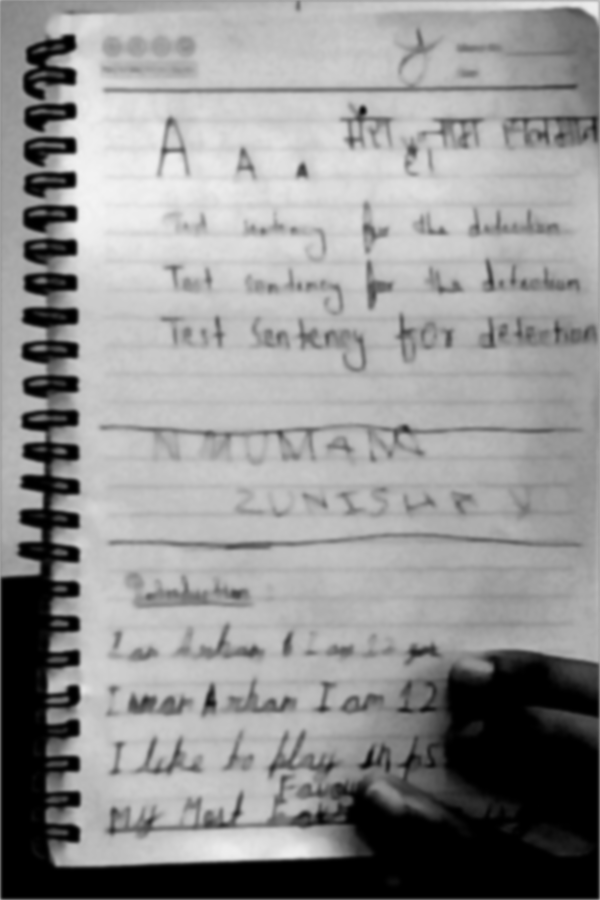 A A A
मेरा नाम सलमान
है।
Test sentency for the detection
Test sentency for the detection
Test Sentency for detection
NMUMAM
ZUNISHA
Introduction
I am Arhan I am 12
I am Arhan I am 12
I like to play in ps
Favou
My Most